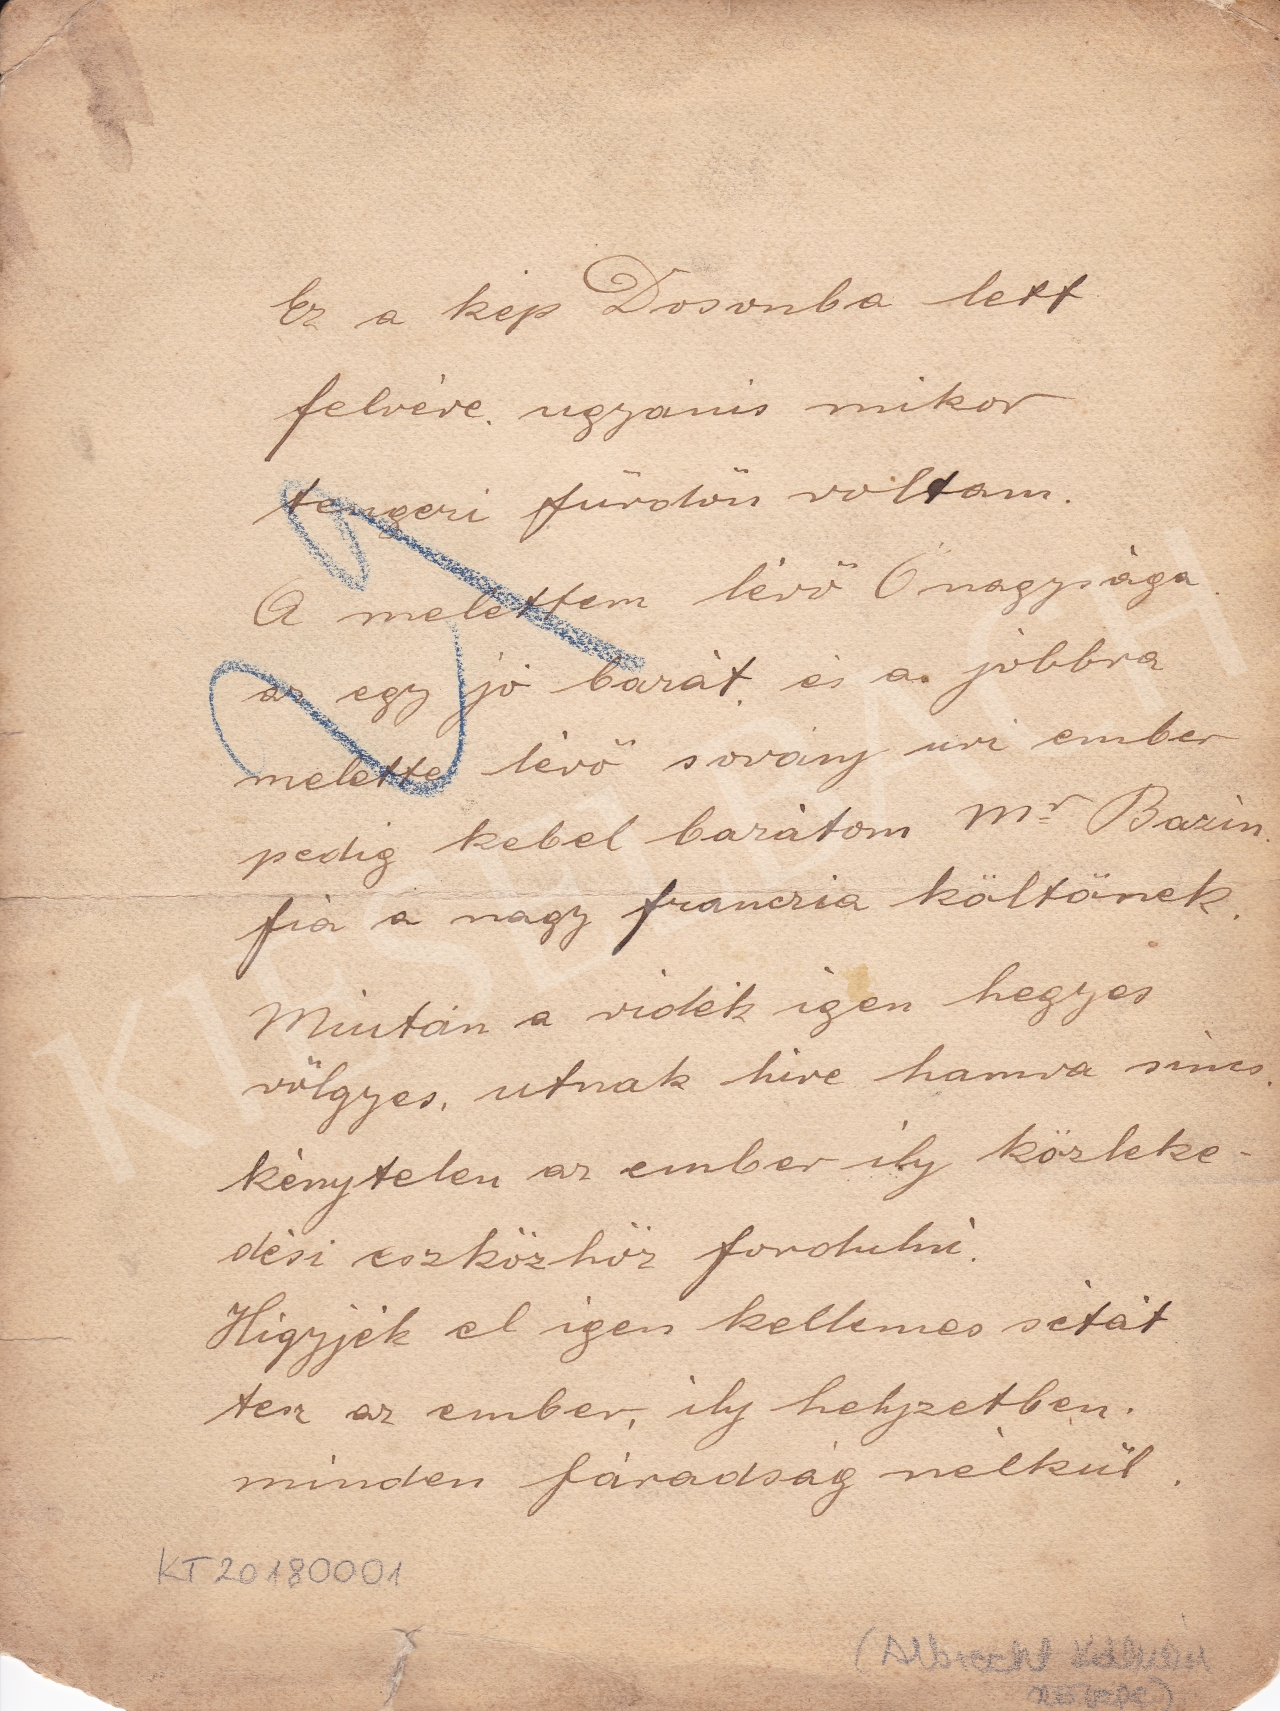 Ez a kép Dosonba lett
felvéve. ugyanis mikor
tengeri fürdőn voltam.
A melettem lévő Ő nagysága
az egy jó barát, és a jobbra
melette lévő sovány uri ember
pedig kebel barátom Mr Bazin.
fia a nagy franczia költőnek.
Miután a vidék igen hegyes
völgyes, utnak hire hamva sincs.
kénytelen az ember ily közleke-
dési eszközhöz fordulni.
Higyjék el igen kellemes sétát
tesz az ember, ily helyzetben.
minden fáradság nélkül.
KT20180001
(Albrecht
KIESELBACH